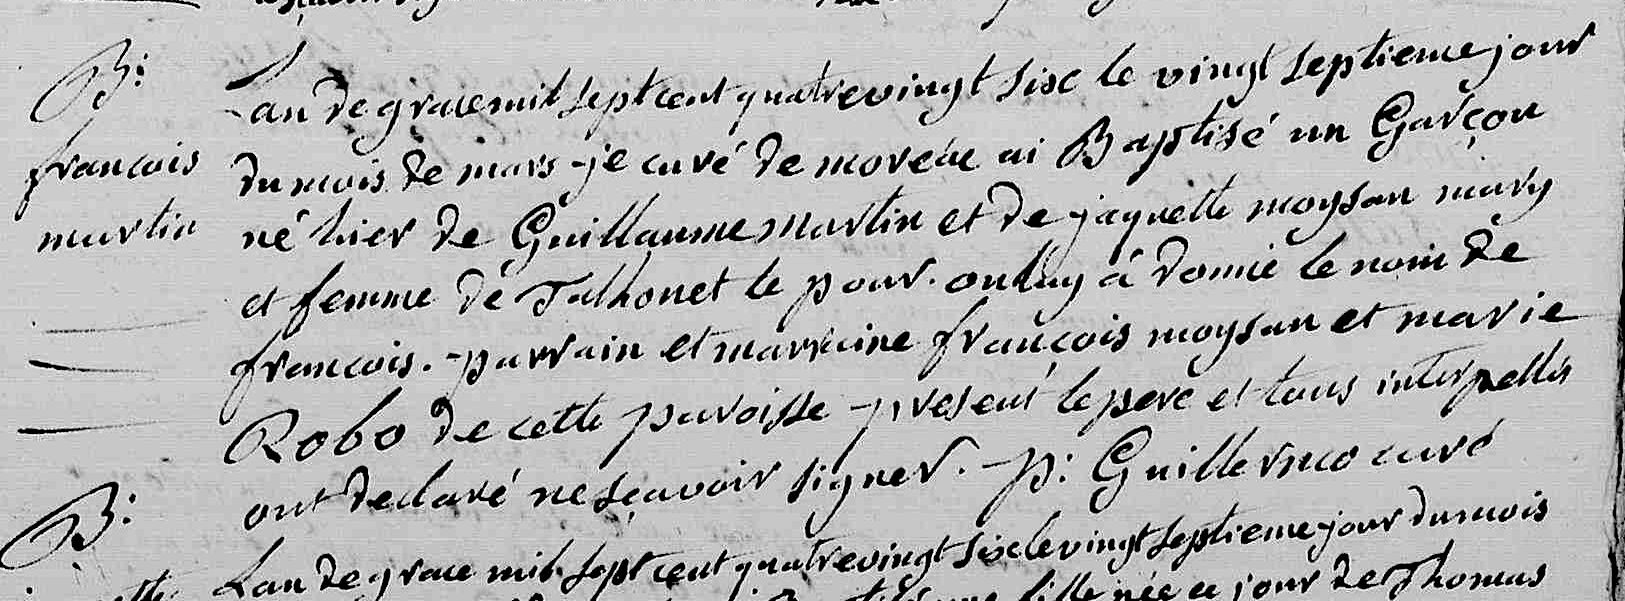 B:
francois
martin
Lan de grace mil sept cent quatre vingt sisc le vingt septieme jour
du mois de mars je curé de moreac ai Baptisé un Garçon
né hier de Guillaume Martin et de jaquette moysan mary
et femme de Talhonet le pour. on luy á donné le nom de
francois. parrain et marraine francois moysan et marie
Robo de cette paroisse present le pere et tous interpellés
ont declaré ne sçavoir signer. p: Guillermo curé
B:
Lan de grace mil sept cent quatre vingt sisc le vingt septieme jour du mois
fille née ce jour de Thomas